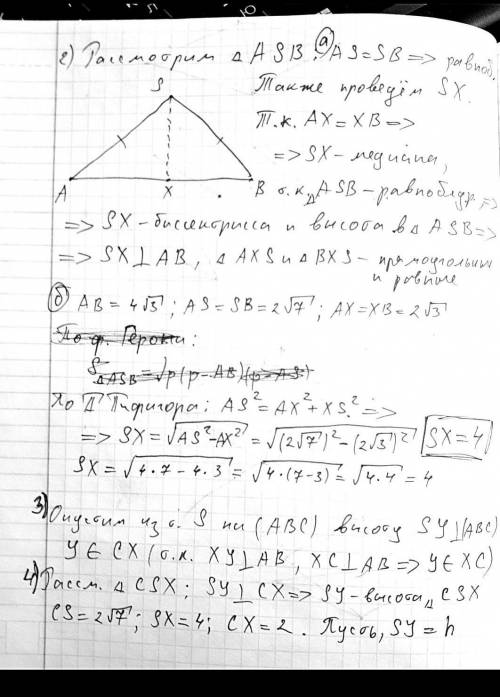 2) Рассмотрим △ASB: а) AS=SB => равноб.
S
Также проведём SX.
Т.к. AX=XB =>
=> SX-медиана,
A X B т.к. △ASB-равнобедр. =>
=> SX-биссектриса и высота в △ASB =>
=> SX⊥AB, △AXS и △BXS- прямоугольные
и равные
б) AB=4√3; AS=SB=2√7; AX=XB=2√3
По ф. Герона:
S△ASB=√p(p-AB)(p-AS)
По т. Пифагора: AS²=AX²+XS² =>
=> SX=√AS²-AX²=√(2√7)²-(2√3)² SX=4
SX=√4·7-4·3=√4·(7-3)=√4·4=4
3) Опустим из т. S на (ABC) высоту SY⊥(ABC)
Y∈CX (т.к. XY⊥AB, XC⊥AB => Y∈XC)
4) Рассм. △CSX: SY⊥CX => SY-высота △CSX
CS=2√7; SX=4; CX=2. Пусть, SY=h